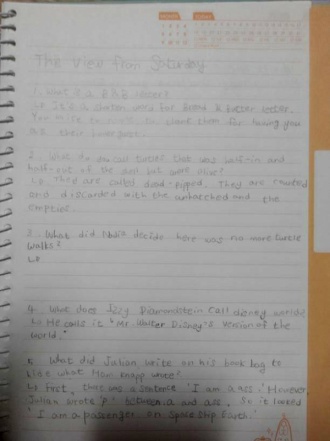 The View from Saturday
1. What is a B & B letter?
↳ It is a short word for Bread & Butter letter.
You write to thank them for having you
as their houseguest.
2. What do you call turtles that was half-in and
half-out of the shell but were alive?
↳ They are called dead-pipped. They are counted
and discarded with the unhatched and the
empties.
3. What did Nadia decide here was no more turtle
walks?
↳
4. What does Izzy Diamondstein call disney world?
↳ He calls it "Mr. Walter Disney's version of the
world."
5. What did Julian write on his book bag to
what Ham Knapp wrote?
↳ First, that was a sentence 'I am a ass.' However
Julian wrote 'p' between a and ass. So it looked
'I am a passenger on Spaceship Earth.'